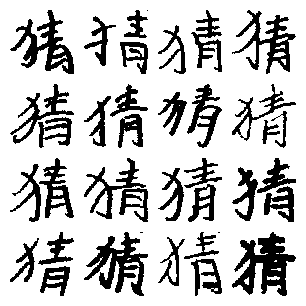 猜猜猜猜
猜猜猜猜
猜猜猜猜
猜猜猜猜